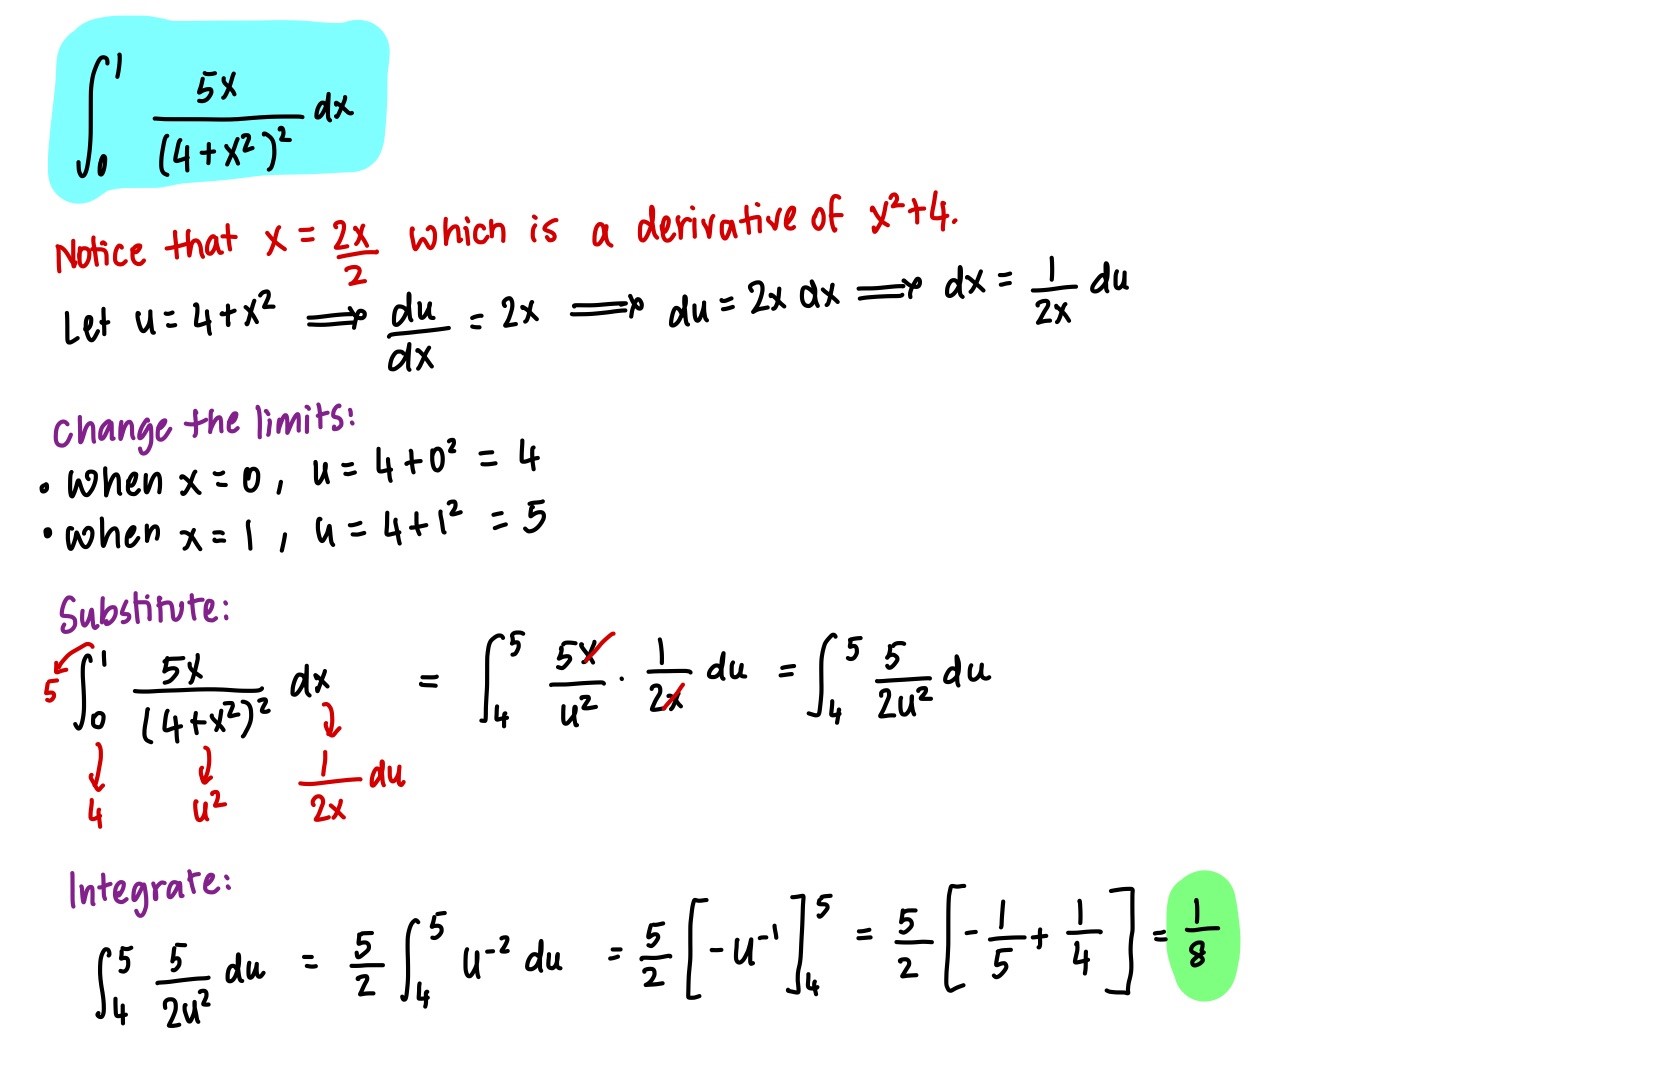 ∫₀¹ 5x/(4+x²)² dx
Notice that x = 2x/2 which is a derivative of x²+4.
Let u = 4+x² ⟹ du/dx = 2x ⟹ du = 2x dx ⟹ dx = 1/2x du
Change the limits:
• when x = 0, u = 4+0² = 4
• when x = 1, u = 4+1² = 5
Substitute:
5 ∫₀¹ 5x/(4+x²)² dx = ∫₄⁵ 5x/u² · 1/2x du = ∫₄⁵ 5/2u² du
4 u² 1/2x du
Integrate:
∫₄⁵ 5/2u² du = 5/2 ∫₄⁵ u⁻² du = 5/2 [-u⁻¹]₄⁵ = 5/2 [-1/5 + 1/4] = 1/8